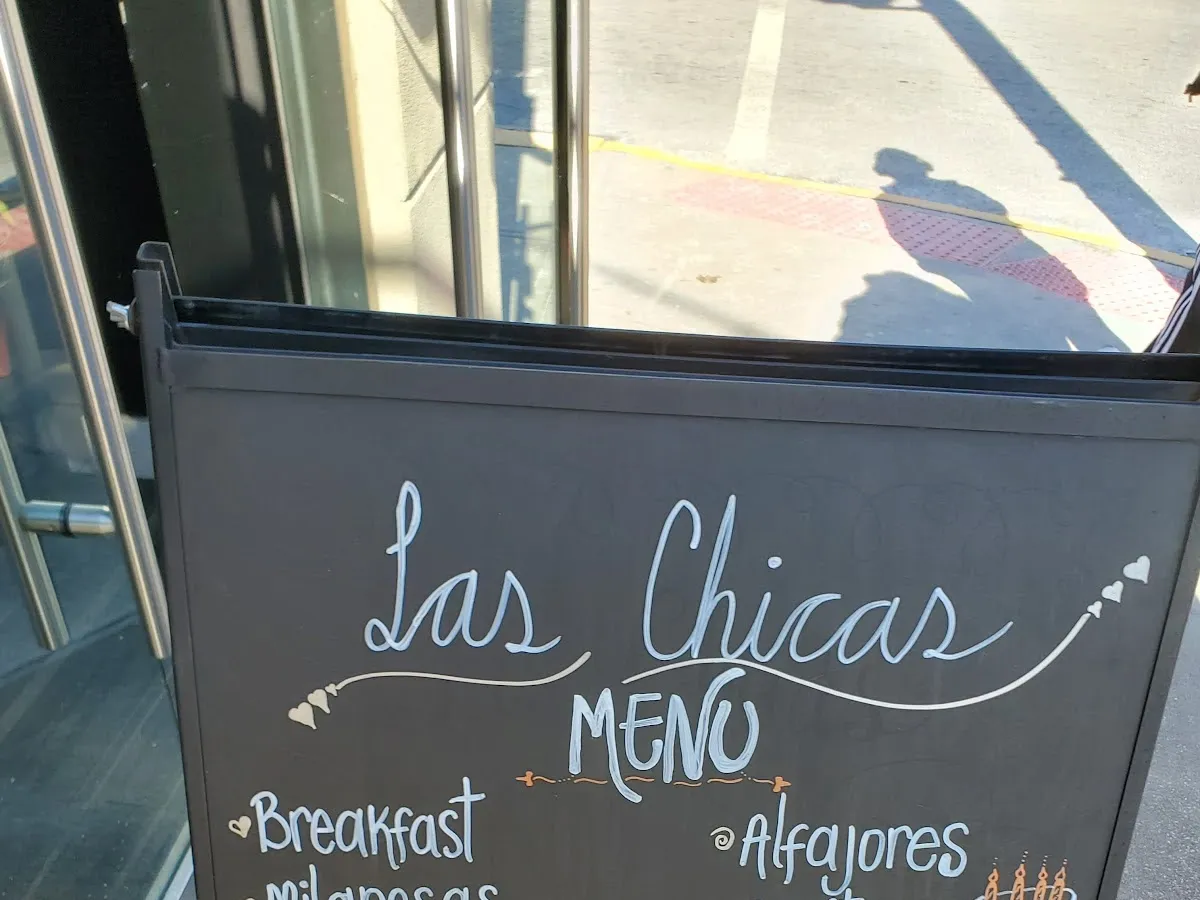 Las Chicas
MENU
Breakfast
Alfajores
Milanesas